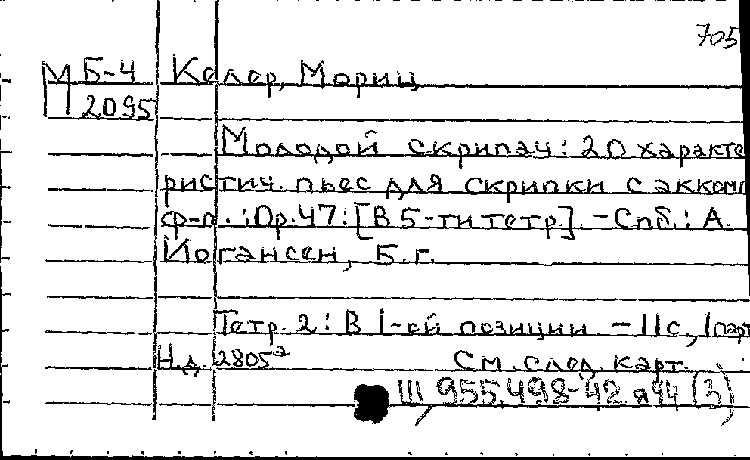 705
М Б-4 Келер, Мориц
2095
Молодой скрипач: 20 характе
ристич. пьес для скрипки с акком
ф-п. : Ор. 47: [В 5-ти тетр]. - Спб.: А.
Иогансен, Б.г.
Тетр. 2: В I-ой позиции - 11с, 1парт
Н.д. 2805² См. след. карт.
III 955.498-42 я44 (3)